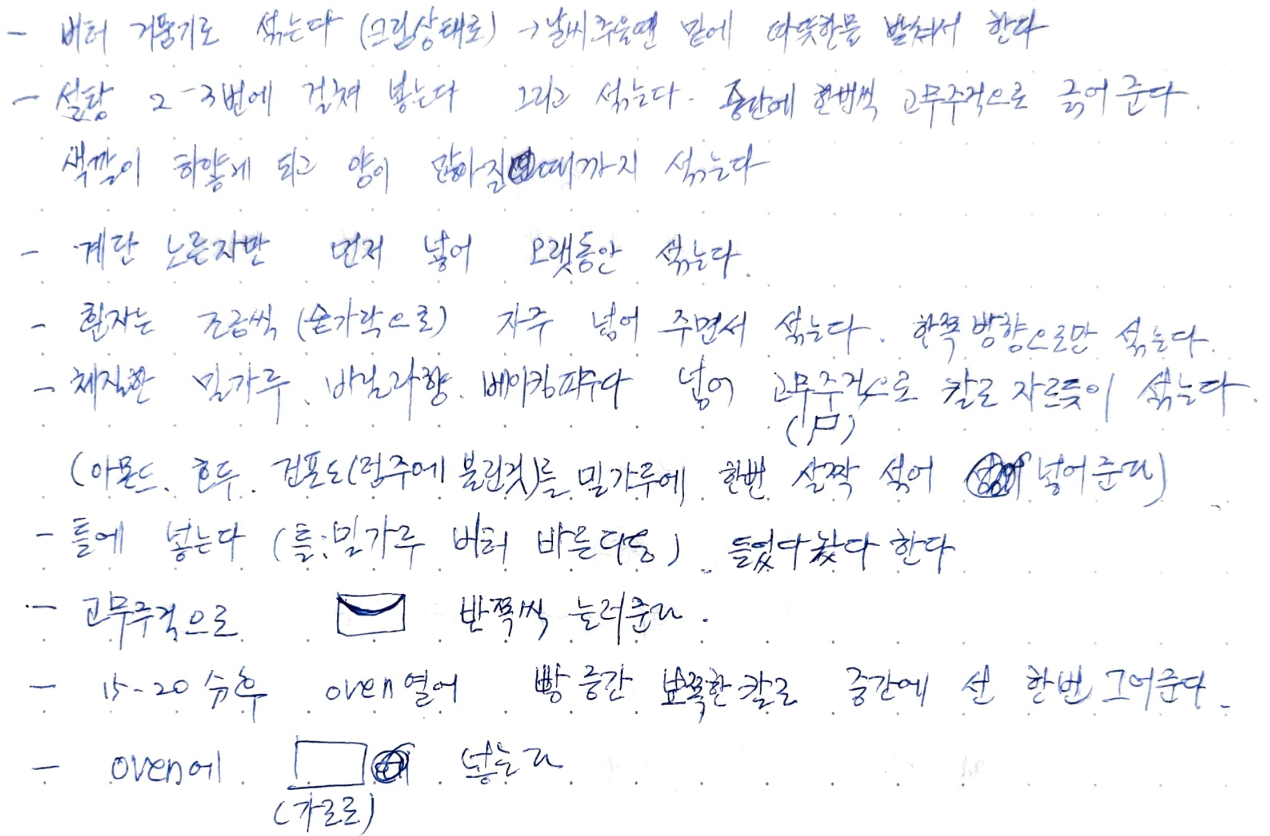 - 버터 거품기로 섞는다 (크림상태로) → 날씨추울땐 밑에 따뜻한물 받쳐서 한다
- 설탕 2-3번에 걸쳐 넣는다 그리고 섞는다. 중간에 한번씩 고무주걱으로 긁어 준다.
색깔이 하얗게 되고 양이 많아질 때까지 섞는다
- 계란 노른자만 먼저 넣어 오랫동안 섞는다.
- 흰자는 조금씩 (손가락으로) 자주 넣어 주면서 섞는다. 한쪽 방향으로만 섞는다.
- 체질한 밀가루. 바닐라향. 베이킹파우다 넣어 고무주걱으로 칼로 자르듯이 섞는다.
(아몬드. 호두. 건포도(럼주에 불린것)를 밀가루에 한번 살짝 섞어 넣어준다)
- 틀에 넣는다 (틀:밀가루 버터 바른다음). 들었다놨다 한다
- 고무주걱으로 반쪽씩 눌러준다.
- 15-20 分후 oven열어 빵 중간 뾰쪽한칼로 중간에 선 한번 그어준다.
- oven에 넣는다
(가로로)